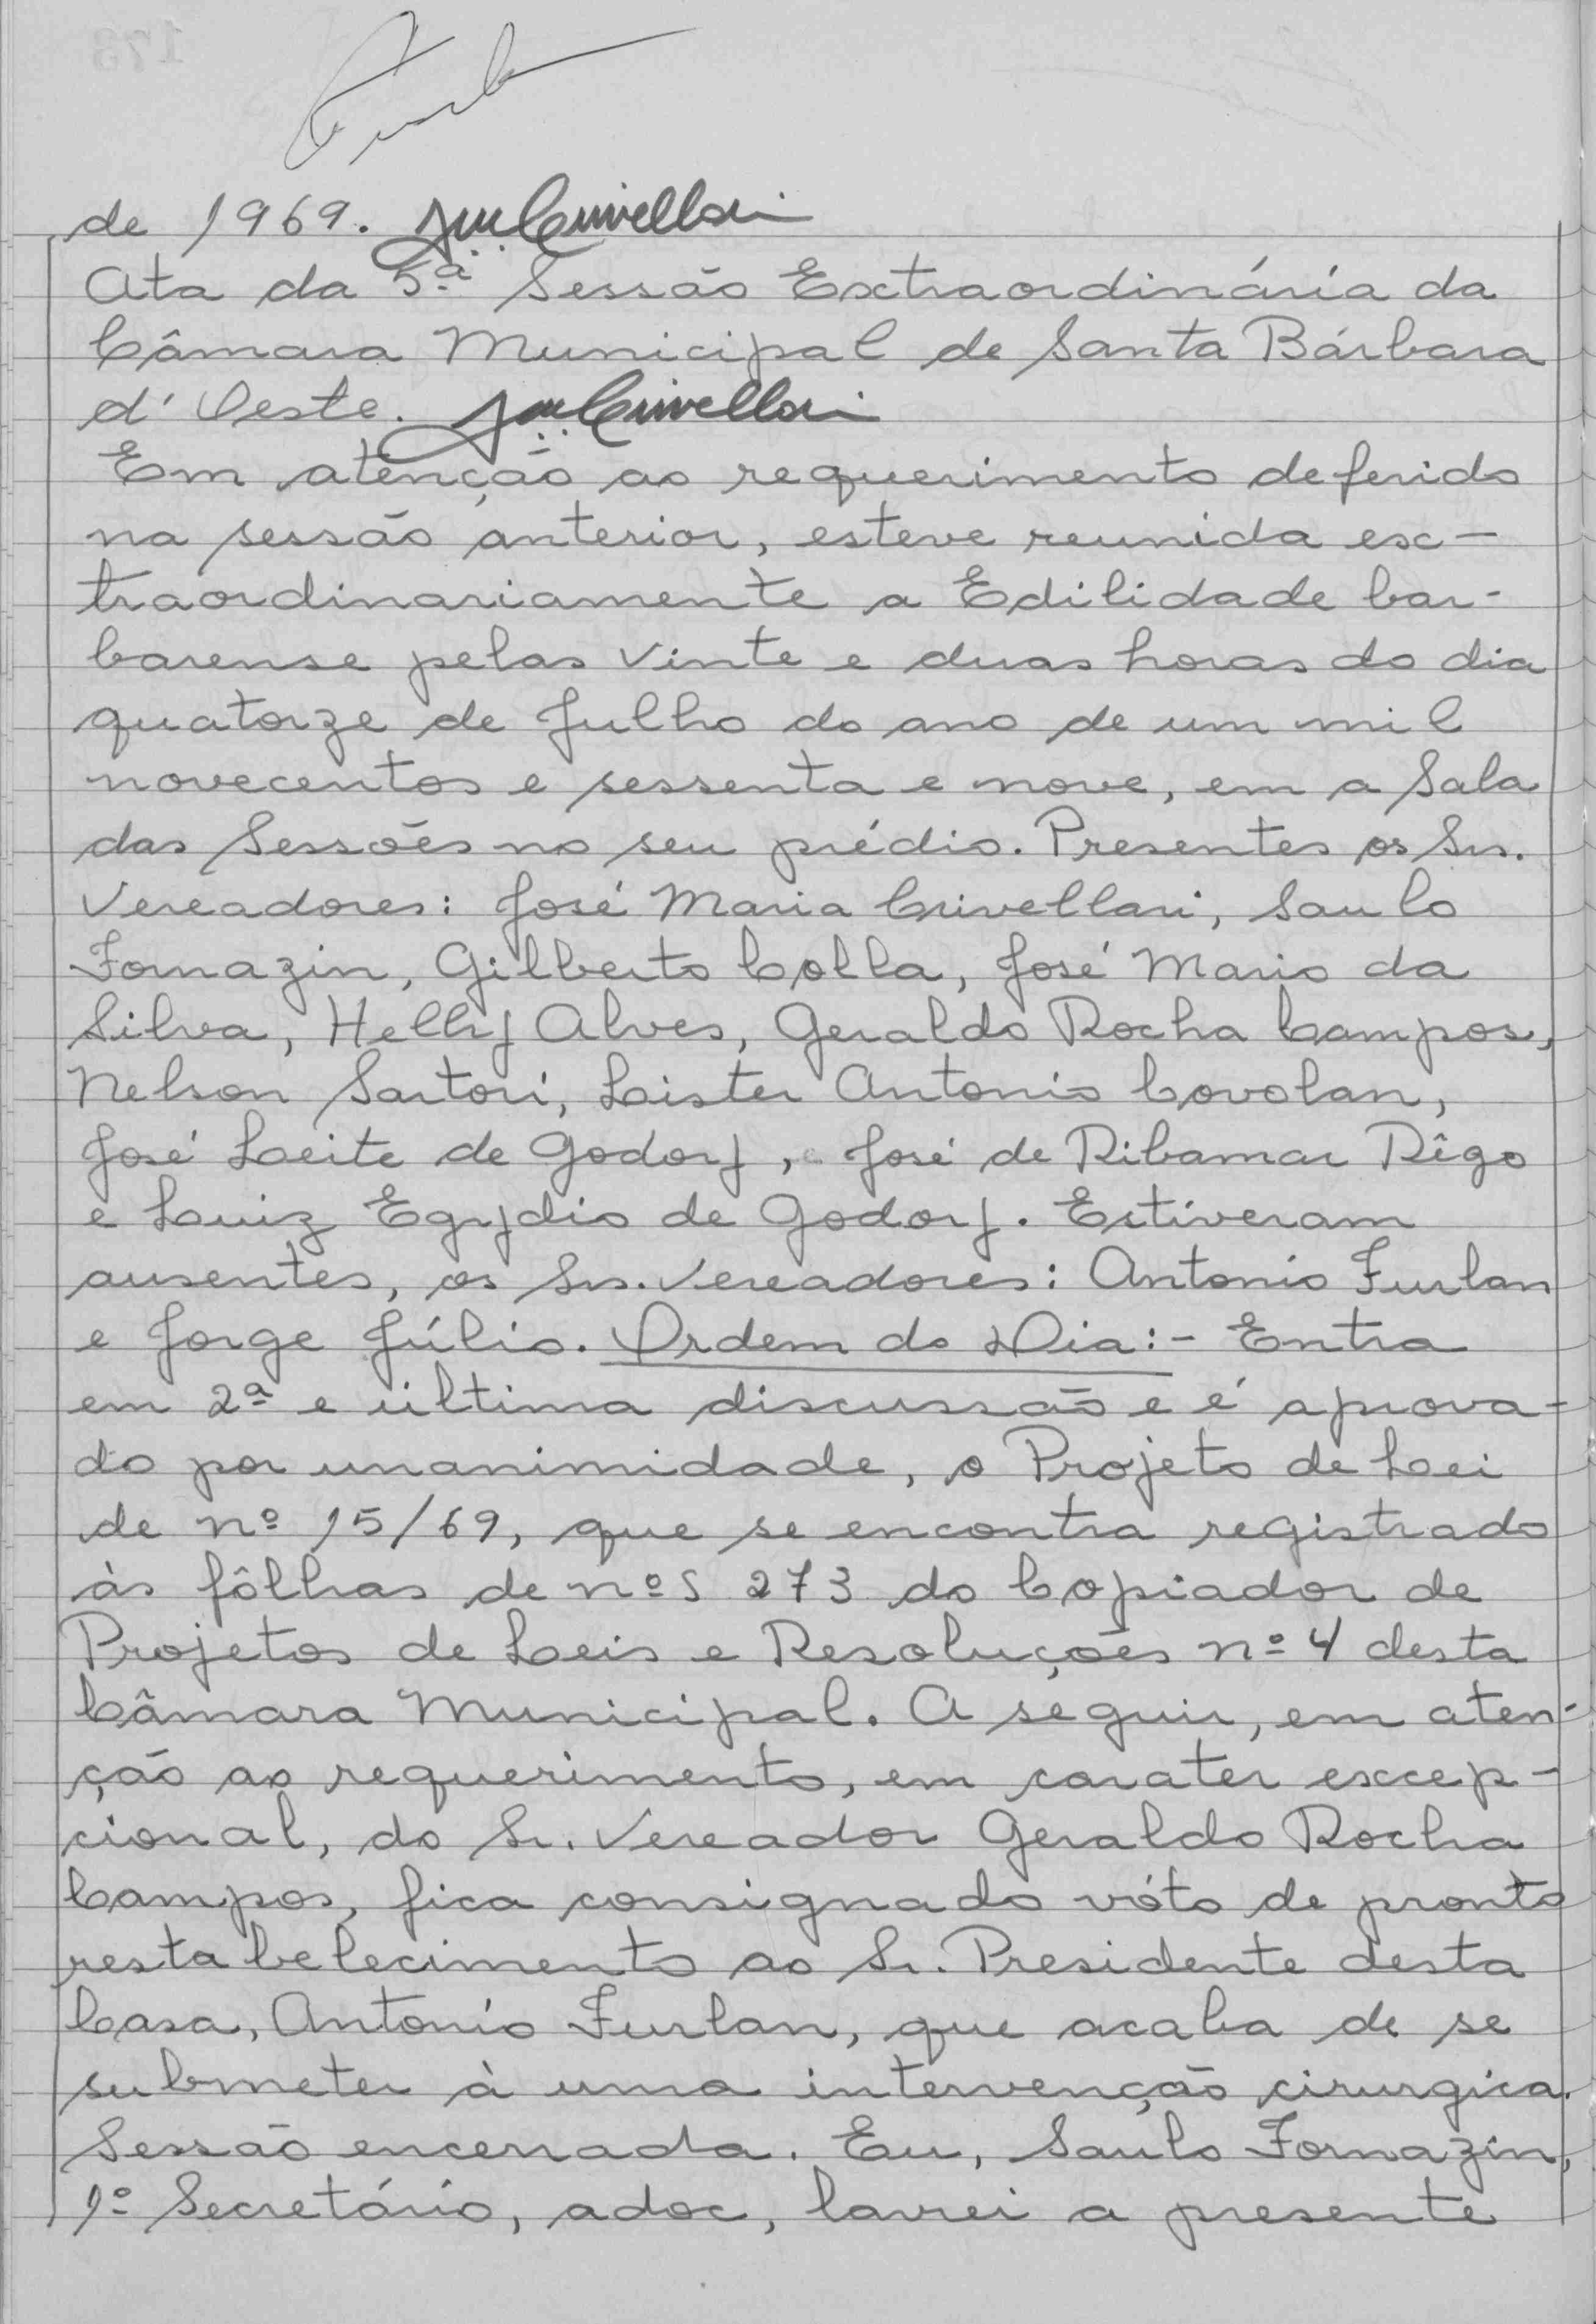 de 1969. JMCrivellari
Ata da 5ª Sessão Extraordinária da
Câmara Municipal de Santa Bárbara
d'Oeste. JMCrivellari
Em atenção ao requerimento deferido
na sessão anterior, esteve reunida ex-
traordinariamente a Edilidade bar-
barense pelas vinte e duas horas do dia
quatorze de Julho do ano de um mil
novecentos e sessenta e nove, em a Sala
das Sessões no seu prédio. Presentes os Srs.
Vereadores: José Maria Crivellari, Saulo
Fornazin, Gilberto Colla, José Mario da
Silva, Helly Alves, Geraldo Rocha Campos,
Nelson Sartori, Lister Antonio Covolan,
José Leite de Godoy, e José de Ribamar Rêgo
e Luiz Egydio de Godoy. Estiveram
ausentes, os Srs. Vereadores: Antonio Furlan
e Jorge Júlio. Ordem do Dia:- Entra
em 2ª e última discussão e é aprova-
do por unanimidade, o Projeto de Lei
de nº 15/69, que se encontra registrado
às fôlhas de nºs 273 do Copiador de
Projetos de Leis e Resoluções nº 4 desta
Câmara Municipal. A seguir, em aten-
ção ao requerimento, em carater excep-
cional, do Sr. Vereador Geraldo Rocha
Campos, fica consignado vóto de pronto
restabelecimento ao Sr. Presidente desta
Casa, Antonio Furlan, que acaba de se
submeter à uma intervenção cirurgica.
Sessão encerrada. Eu, Saulo Fornazin,
1º Secretário, adoc, lavrei a presente